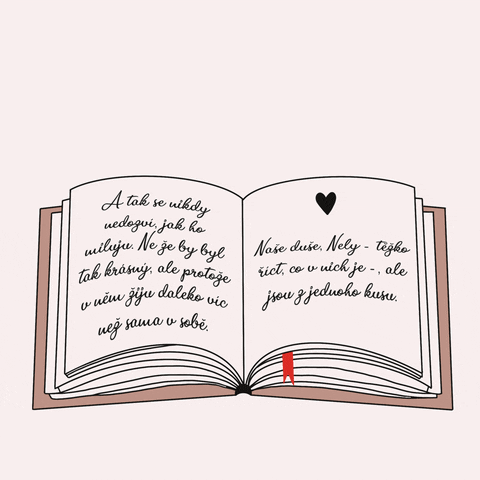 A tak se nikdy
nedozví, jak ho
miluju. Ne že by byl
tak krásný, ale protože
v něm žiju daleko víc
než sama v sobě.
Naše duše, Nely - těžko
říct, co v nich je -, ale
jsou z jednoho kusu.